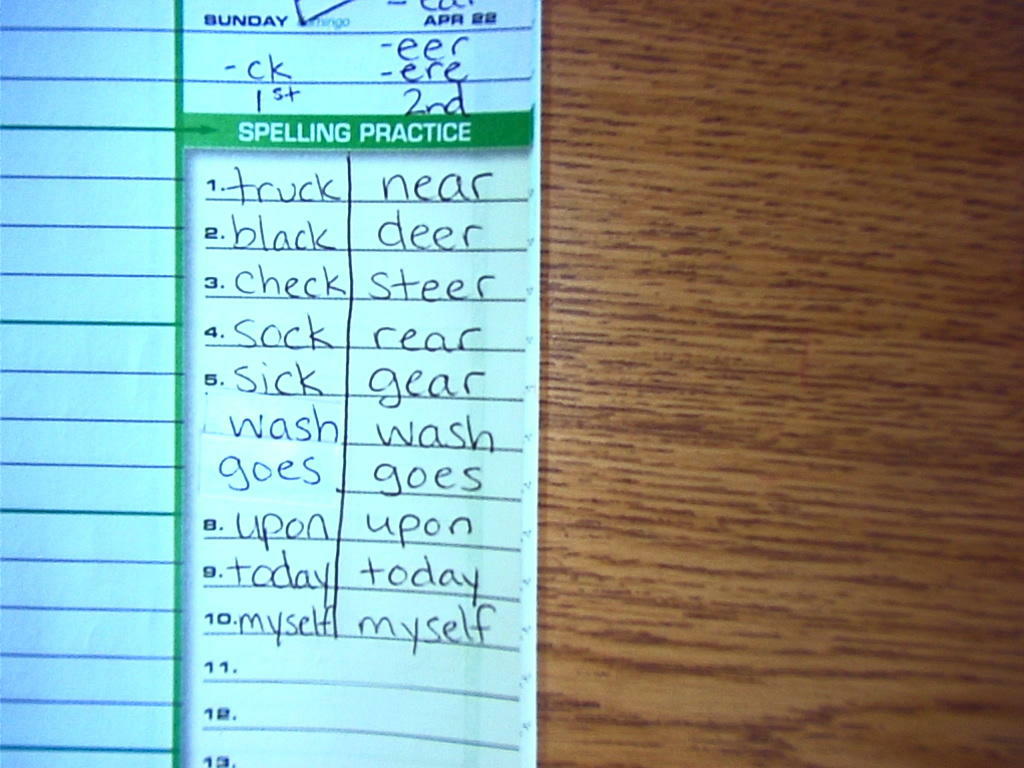 -ear
SUNDAY Domingo APR 22
-eer
-ck -ere
1st 2nd
SPELLING PRACTICE
1. truck near
2. black deer
3. check steer
4. sock rear
5. sick gear
wash wash
goes goes
8. upon upon
9. today today
10. myself myself
11.
12.
13.